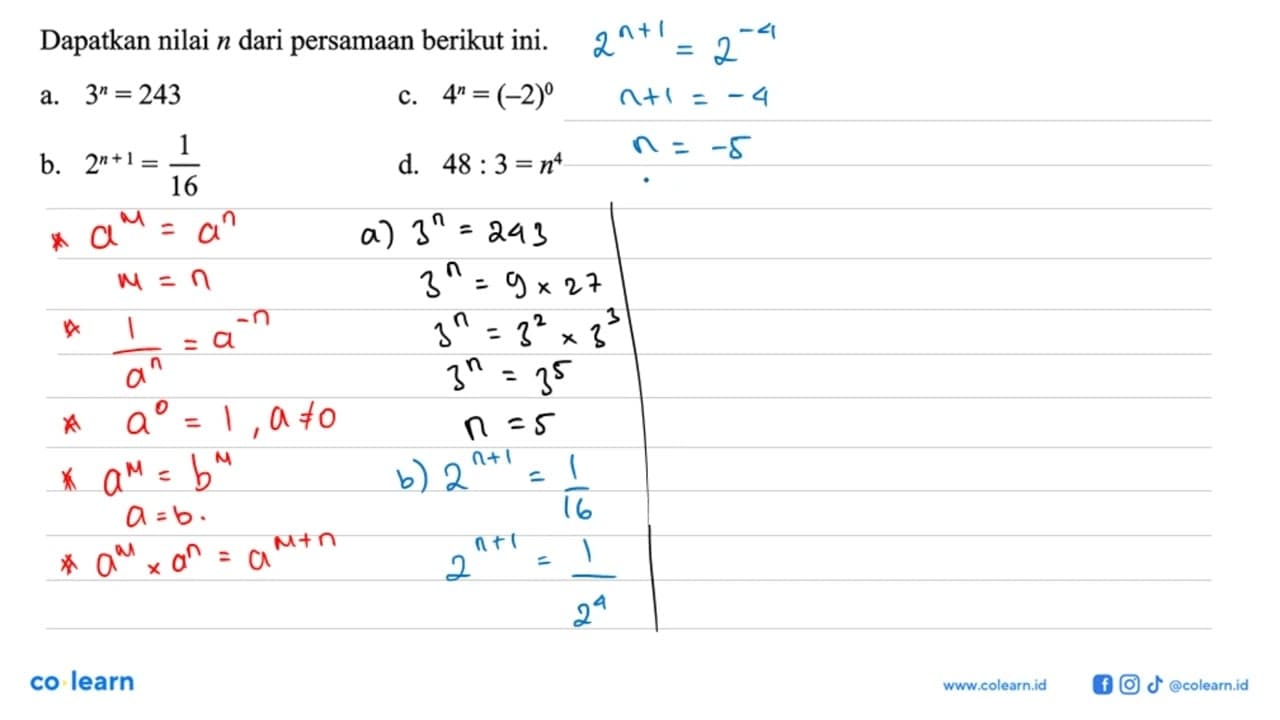 Dapatkan nilai n dari persamaan berikut ini.
a. 3ⁿ = 243
c. 4ⁿ = (–2)⁰
b. 2ⁿ⁺¹ = 1/16
d. 48 : 3 = n⁴
2ⁿ⁺¹ = 2⁻⁴
n+1 = -4
n = -5
* aᴹ = aⁿ
M = n
* 1/aⁿ = a⁻ⁿ
* a⁰ = 1, a ≠ 0
* aᴹ = bᴹ
a = b.
* aᴹ × aⁿ = aᴹ⁺ⁿ
a) 3ⁿ = 243
3ⁿ = 9 × 27
3ⁿ = 3² × 3³
3ⁿ = 3⁵
n = 5
b) 2ⁿ⁺¹ = 1/16
2ⁿ⁺¹ = 1/2⁴
co learn
www.colearn.id
@colearn.id